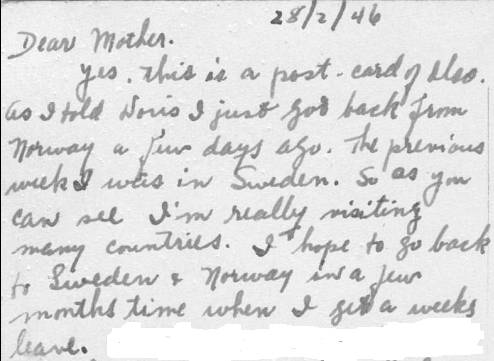 28/2/46
Dear Mother.
Yes, this is a post-card of Oslo.
As I told Doris I just got back from
Norway a few days ago. The previous
week I was in Sweden. So as you
can see I'm really visiting
many countries. I hope to go back
to Sweden & Norway in a few
months time when I get a weeks
leave.